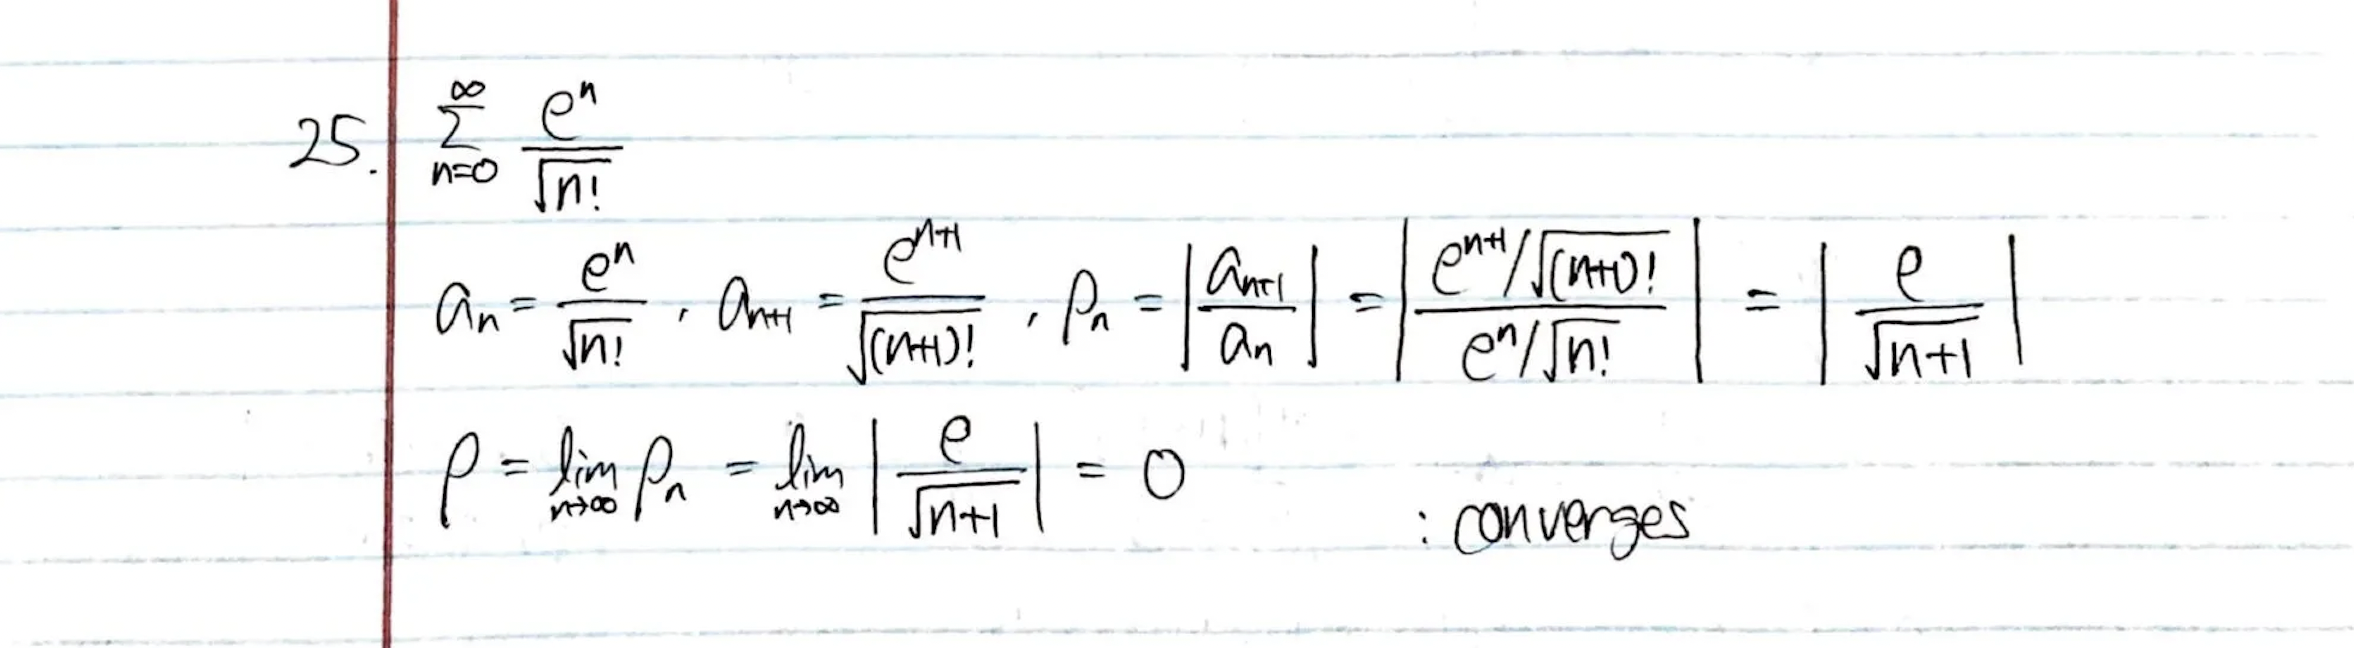 25. $\sum_{n=0}^{\infty} \frac{e^n}{\sqrt{n!}}$
$a_n = \frac{e^n}{\sqrt{n!}}, a_{n+1} = \frac{e^{n+1}}{\sqrt{(n+1)!}}, \rho_n = \left|\frac{a_{n+1}}{a_n}\right| = \left|\frac{e^{n+1}/\sqrt{(n+1)!}}{e^n/\sqrt{n!}}\right| = \left|\frac{e}{\sqrt{n+1}}\right|$
$\rho = \lim_{n\to\infty} \rho_n = \lim_{n\to\infty} \left|\frac{e}{\sqrt{n+1}}\right| = 0$ : converges